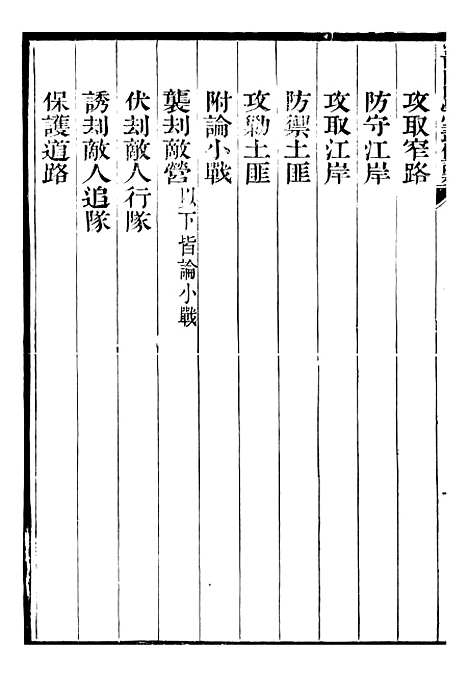 攻取窄路
防守江岸
攻取江岸
防禦土匪
攻勦土匪
附論小戰
襲刼敵營以下皆論小戰
伏刼敵人行隊
誘刼敵人追隊
保護道路